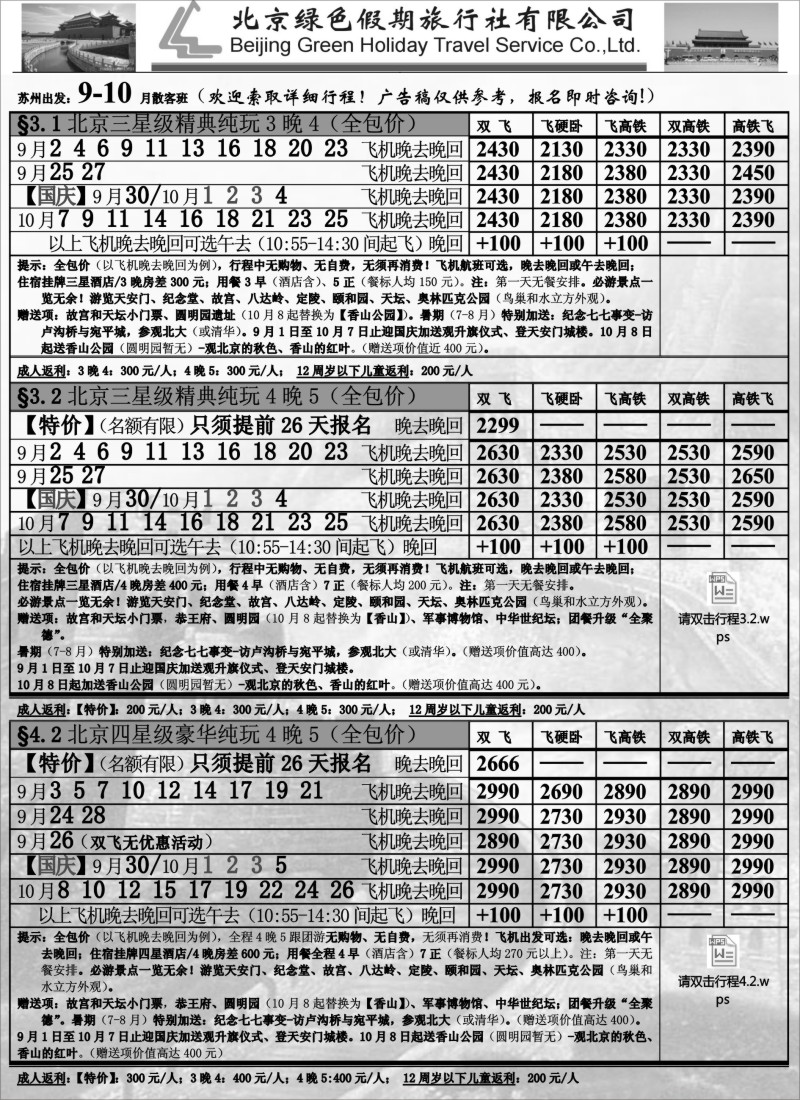 北京绿色假期旅行社有限公司
Beijing Green Holiday Travel Service Co.,Ltd.
苏州出发：9-10 月散客班（欢迎索取详细行程！广告稿仅供参考，报名即时咨询!）
§3.1北京三星级精典纯玩3晚4（全包价） 双 飞 飞硬卧 飞高铁 双高铁 高铁飞
9月2 4 6 9 11 13 16 18 20 23 飞机晚去晚回 2430 2130 2330 2330 2390
9月25 27 飞机晚去晚回 2430 2180 2380 2330 2450
【国庆】9月30/10月1 2 3 4 飞机晚去晚回 2430 2180 2380 2330 2390
10月7 9 11 14 16 18 21 23 25 飞机晚去晚回 2430 2180 2380 2330 2390
以上飞机晚去晚回可选午去(10:55-14:30间起飞)晚回 +100 +100 +100 —— ——
提示：全包价（以飞机晚去晚回为例），行程中无购物、无自费，无须再消费！飞机航班可选，晚去晚回或午去晚回；
住宿挂牌三星酒店/3晚房差300元；用餐3早（酒店含）、5正（餐标人均150元）。注：第一天无餐安排。必游景点一
览无余！游览天安门、纪念堂、故宫、八达岭、定陵、颐和园、天坛、奥林匹克公园（鸟巢和水立方外观）。
赠送项：故宫和天坛小门票、圆明园遗址（10月8起替换为【香山公园】）。暑期（7-8月）特别加送：纪念七七事变-访
卢沟桥与宛平城，参观北大（或清华）。9月1日至10月7日止迎国庆加送观升旗仪式、登天安门城楼。10月8日
起送香山公园（圆明园暂无）-观北京的秋色、香山的红叶。（赠送项价值近400元）。
成人返利：3晚4：300元/人；4晚5：300元/人； 12周岁以下儿童返利：200元/人
§3.2北京三星级精典纯玩4晚5（全包价） 双 飞 飞硬卧 飞高铁 双高铁 高铁飞
【特价】(名额有限) 只须提前26天报名 晚去晚回 2299 —— —— —— ——
9月2 4 6 9 11 13 16 18 20 23 飞机晚去晚回 2630 2330 2530 2530 2590
9月25 27 飞机晚去晚回 2630 2380 2580 2530 2650
【国庆】9月30/10月1 2 3 4 飞机晚去晚回 2630 2330 2530 2530 2590
10月7 9 11 14 16 18 21 23 25 飞机晚去晚回 2630 2380 2580 2530 2590
以上飞机晚去晚回可选午去(10:55-14:30间起飞)晚回 +100 +100 +100 —— ——
提示：全包价（以飞机晚去晚回为例），行程中无购物、无自费，无须再消费！飞机航班可选，晚去晚回或午去晚回；
住宿挂牌三星酒店/4晚房差400元；用餐4早（酒店含）7正（餐标人均200元）。注：第一天无餐安排。
必游景点一览无余！游览天安门、纪念堂、故宫、八达岭、定陵、颐和园、天坛、奥林匹克公园（鸟巢和水立方外观）。
赠送项：故宫和天坛小门票，恭王府、圆明园（10月8起替换为【香山】）、军事博物馆、中华世纪坛；团餐升级“全聚
德”。
暑期（7-8月）特别加送：纪念七七事变-访卢沟桥与宛平城，参观北大（或清华）。（赠送项价值高达400）。
9月1日至10月7日止迎国庆加送观升旗仪式、登天安门城楼。
10月8日起加送香山公园（圆明园暂无）-观北京的秋色、香山的红叶。（赠送项价值高达400元）。
请双击行程3.2.w
ps
成人返利：【特价】：200元/人；3晚4：300元/人；4晚5：300元/人； 12周岁以下儿童返利：200元/人
§4.2北京四星级豪华纯玩4晚5（全包价） 双 飞 飞硬卧 飞高铁 双高铁 高铁飞
【特价】(名额有限) 只须提前26天报名 晚去晚回 2666 —— —— —— ——
9月3 5 7 10 12 14 17 19 21 飞机晚去晚回 2990 2690 2890 2890 2990
9月24 28 飞机晚去晚回 2990 2730 2930 2890 2990
9月26（双飞无优惠活动） 飞机晚去晚回 2890 2730 2930 2890 2990
【国庆】9月30/10月1 2 3 5 飞机晚去晚回 2990 2730 2930 2890 2990
10月8 10 12 15 17 19 22 24 26 飞机晚去晚回 2990 2730 2930 2890 2990
以上飞机晚去晚回可选午去(10:55-14:30间起飞)晚回 +100 +100 +100 —— ——
提示：全包价（以飞机晚去晚回为例），全程4晚5跟团游无购物、无自费，无须再消费！飞机出发可选：晚去晚回或午
去晚回；住宿挂牌四星酒店/4晚房差600元；用餐全程4早（酒店含）7正（餐标人均270元以上）。注：第一天无
餐安排。必游景点一览无余！游览天安门、纪念堂、故宫、八达岭、定陵、颐和园、天坛、奥林匹克公园（鸟巢和
水立方外观）。
赠送项：故宫和天坛小门票，恭王府、圆明园（10月8起替换为【香山】）、军事博物馆、中华世纪坛；团餐升级“全聚
德”。暑期（7-8月）特别加送：纪念七七事变-访卢沟桥与宛平城，参观北大（或清华）。（赠送项价值高达400元）。
9月1日至10月7日止迎国庆加送观升旗仪式、登天安门城楼。10月8日起送香山公园（圆明园暂无）-观北京的秋色、
香山的红叶。（赠送项价值高达400元）
请双击行程4.2.w
ps
成人返利：【特价】：300元/人；3晚4：400元/人；4晚5:400元/人； 12周岁以下儿童返利：200元/人